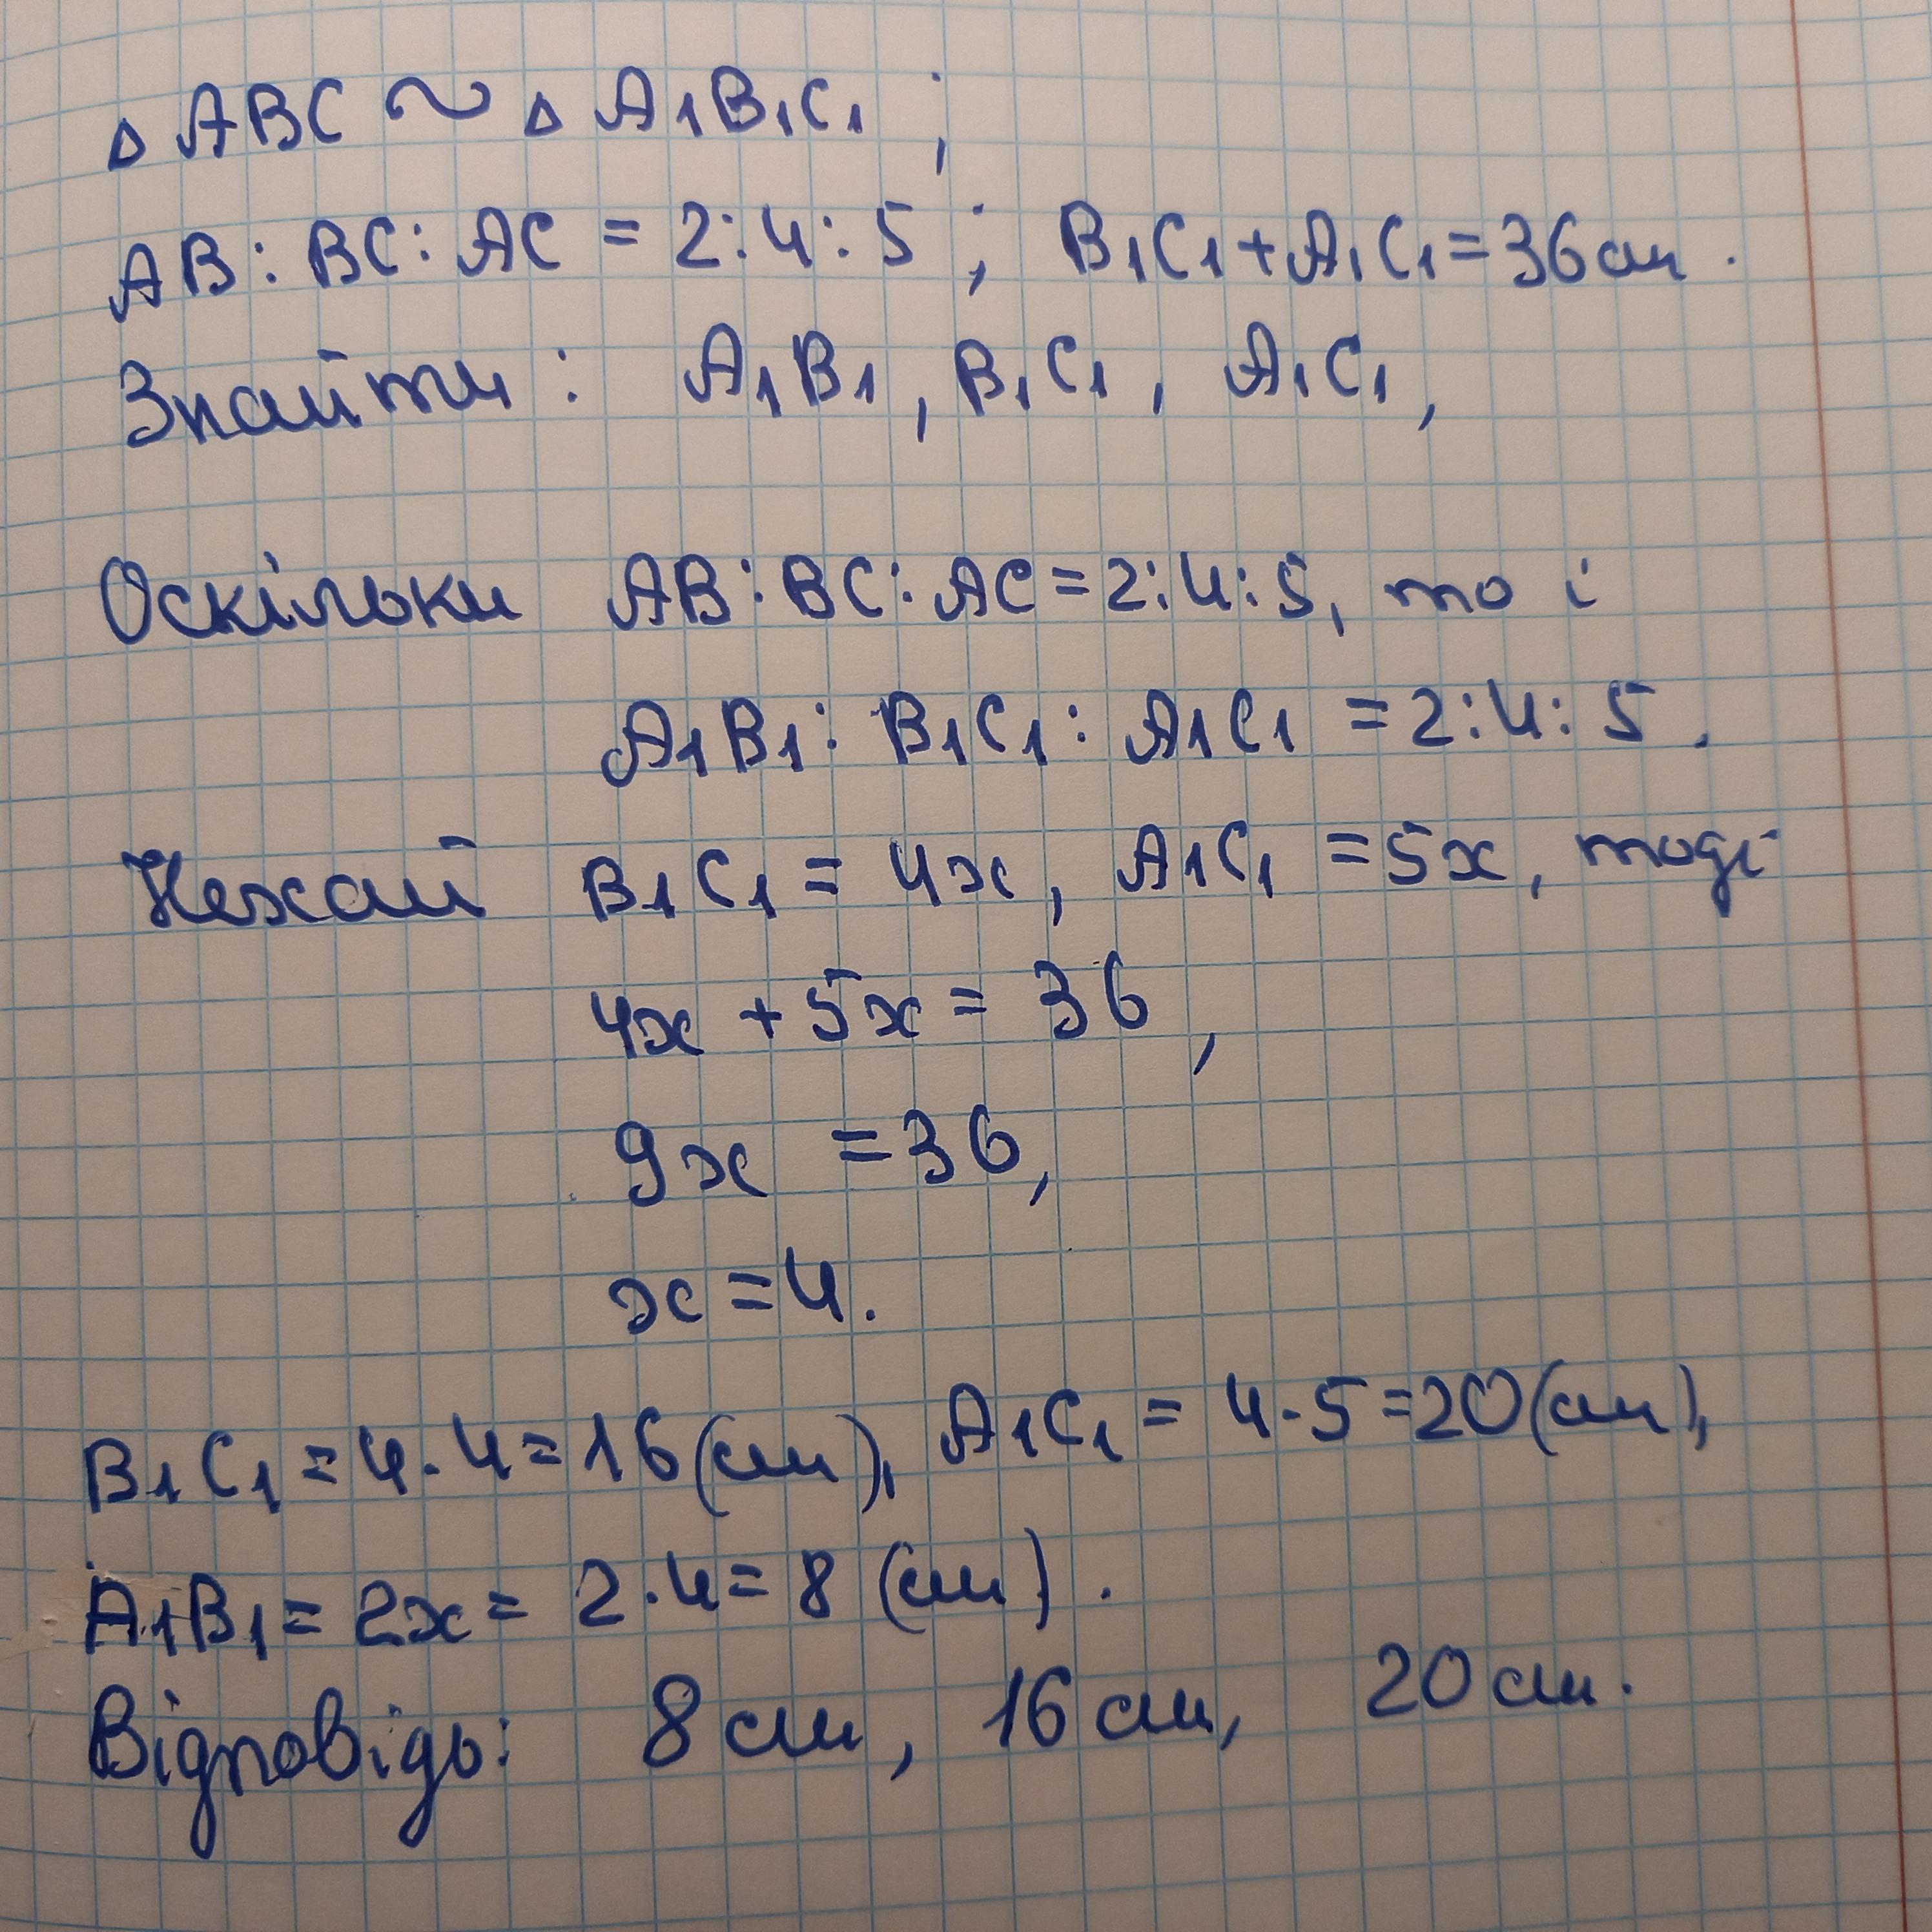 △ ABC ~ △ A₁B₁C₁ ;
AB : BC : AC = 2 : 4 : 5 ; B₁C₁ + A₁C₁ = 36 см .
Знайти : A₁B₁ , B₁C₁ , A₁C₁ ,
Оскільки AB : BC : AC = 2 : 4 : 5, то і
A₁B₁ : B₁C₁ : A₁C₁ = 2 : 4 : 5 .
Нехай B₁C₁ = 4x , A₁C₁ = 5x , тоді
4x + 5x = 36 ,
9x = 36 ,
x = 4 .
B₁C₁ = 4 · 4 = 16 (см), A₁C₁ = 4 · 5 = 20 (см),
A₁B₁ = 2x = 2 · 4 = 8 (см) .
Відповідь: 8 см , 16 см, 20 см .